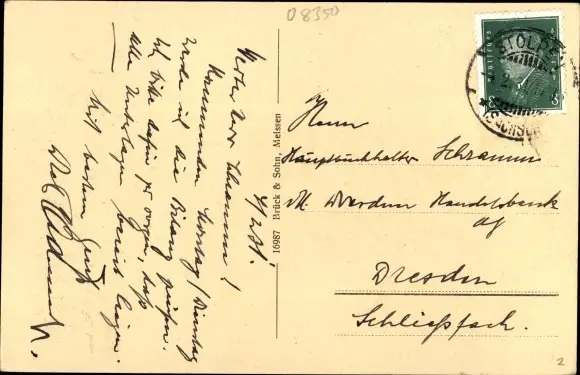 08350
4/2.31.
Werter Herr Schramm!
Kommenden Montag/Dienstag
werde ich die Bilanz prüfen.
Ich bitte dafür zu sorgen, daß
alle Unterlagen bereit liegen.
Mit bestem Gruß
16987 Brück & Sohn, Meissen
DEUTSCHES REICH
8
8
STOLPEN
SACHSEN
Herrn
Hauptbuchhalter Schramm
Handelsbank
AG
Dresden
Schließfach.
2